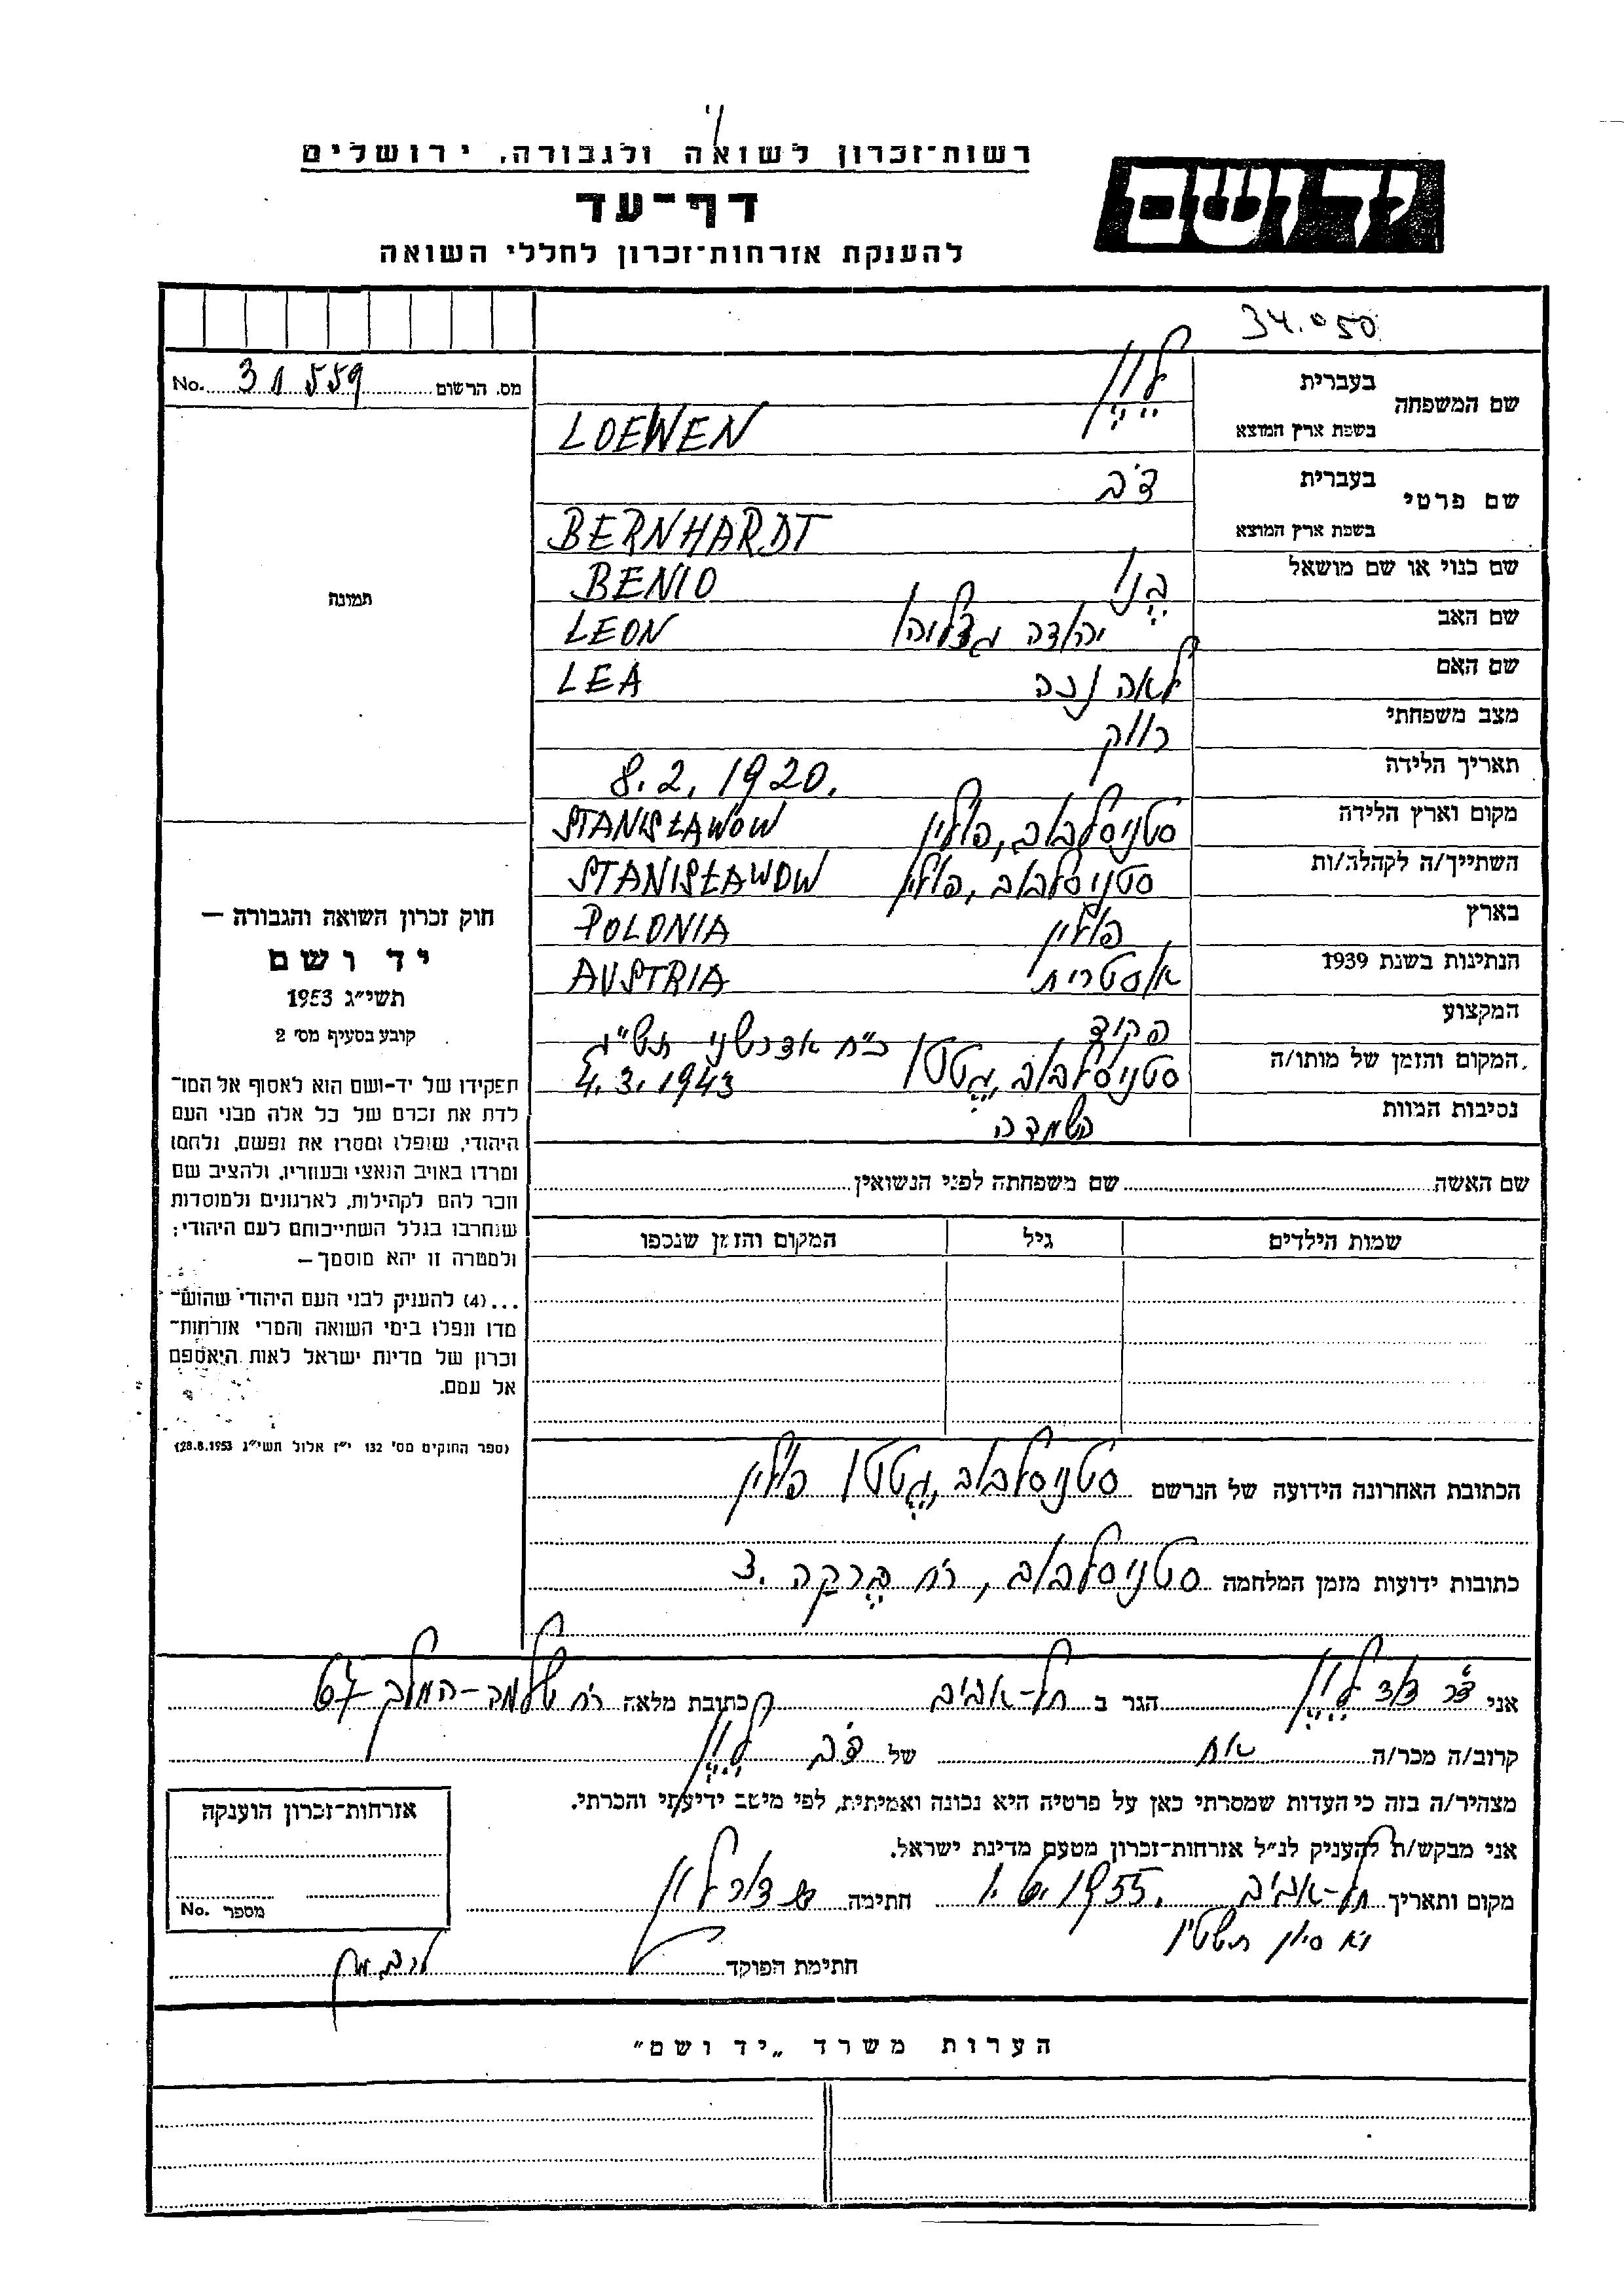 רשות־זכרון לשואה ולגבורה, ירושלים
יד ושם
דף־עד
להענקת אזרחות־זכרון לחללי השואה
34.050
מס. הרשום No. 31559
שם המשפחה בעברית לוין
בשפת ארץ המוצא LOEWEN
שם פרטי בעברית דב
בשפת ארץ המוצא BERNHARDT
שם כנוי או שם מושאל בניו BENIO
שם האב יהודה גדליהו LEON
שם האם לאה LEA
מצב משפחתי רווק
תאריך הלידה 8.2.1920.
מקום וארץ הלידה סטניסלבוב, פולין STANISŁAWÓW
השתייך/ה לקהלה/ות סטניסלבוב, פולין STANISŁAWOW
בארץ פולין POLONIA
הנתינות בשנת 1939 אוסטרית AUSTRIA
המקצוע פקיד
המקום והזמן של מותו/ה סטניסלבוב, גטטו כ״ח אדר שני תש״ג 4.3.1943
נסיבות המוות השמדה
תמונה
חוק זכרון השואה והגבורה —
יד ושם
תשי״ג 1953
קובע בסעיף מס׳ 2
תפקידו של יד-ושם הוא לאסוף אל המו־
לדת את זכרם של כל אלה מבני העם
היהודי, שנפלו ומסרו את נפשם, נלחמו
ומרדו באויב הנאצי ובעוזריו, ולהציב שם
וזכר להם לקהילות, לארגונים ולמוסדות
שנחרבו בגלל השתייכותם לעם היהודי;
ולמטרה זו יהא מוסמך —
...(4) להעניק לבני העם היהודי שהוש־
מדו ונפלו בימי השואה והמרי אזרחות־
זכרון של מדינת ישראל לאות היאספם
אל עמם.
(ספר החוקים מס׳ 132 י״ז אלול תשי״ג 28.8.1953)
שם האשה שם משפחתה לפני הנשואין
שמות הילדים גיל המקום והזמן שנספו
הכתובת האחרונה הידועה של הנרשם סטניסלבוב, גטטו פולין
כתובות ידועות מזמן המלחמה סטניסלבוב, רח׳ ברקה 3.
אני ד״ר דוד לוין הגר ב תל-אביב כתובת מלאה רח׳ שלמה-המלך 67
קרוב/ה מכר/ה אח של דב לוין
מצהיר/ה בזה כי העדות שמסרתי כאן על פרטיה היא נכונה ואמיתית, לפי מיטב ידיעתי והכרתי.
אני מבקש/ת להעניק לנ״ל אזרחות־זכרון מטעם מדינת ישראל.
מקום ותאריך תל-אביב 1955 חתימה דוד לוין
י״א סיון תשט״ו
חתימת הפוקד
אזרחות־זכרון הוענקה
מספר No.
הערות משרד „יד ושם״